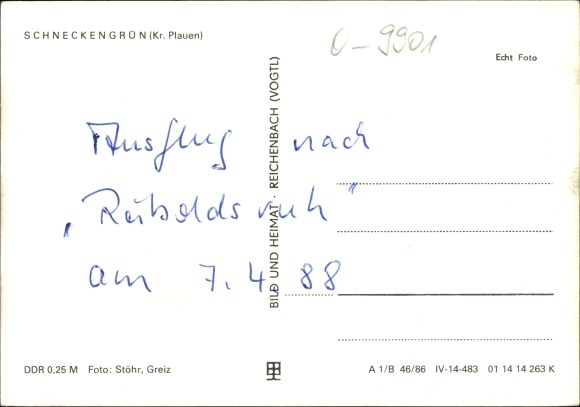 SCHNECKENGRÜN (Kr. Plauen)
O-9901
Echt Foto
Ausflug nach
„Reiboldsruh"
am 7.4.88
BILD UND HEIMAT · REICHENBACH (VOGTL)
DDR 0,25 M Foto: Stöhr, Greiz
A 1/B 46/86 IV-14-483 01 14 14 263 K